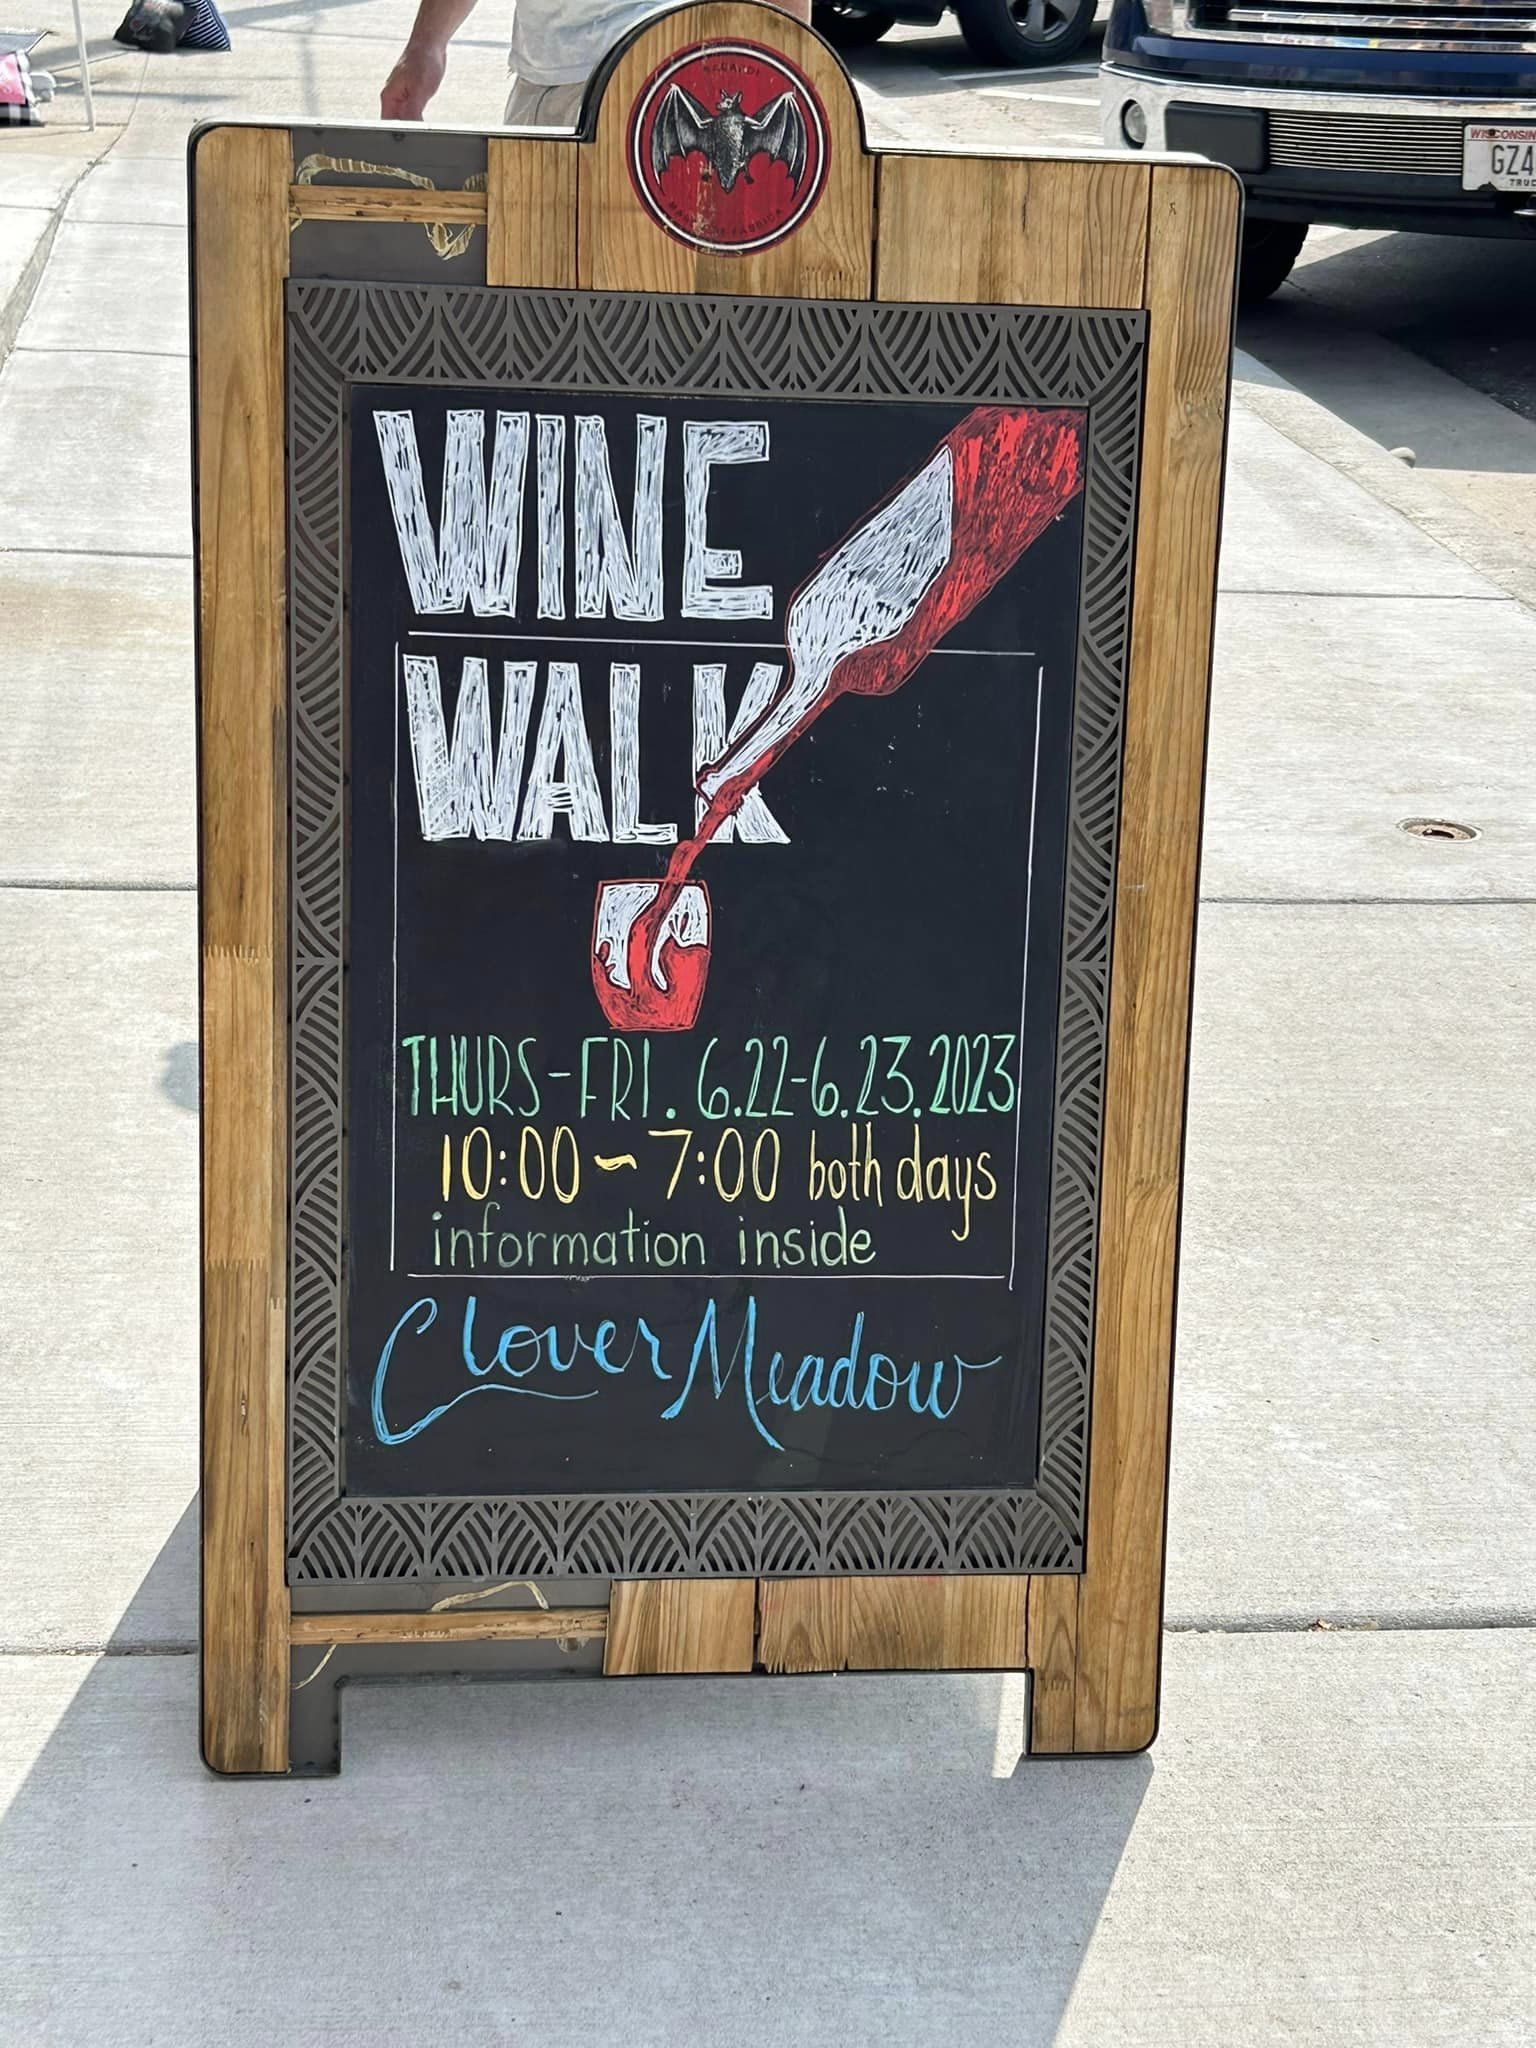 BACARDI
WISCONSIN
GZ4
WINE
WALK
THURS-FRI. 6.22-6.23.2023
10:00~7:00 both days
information inside
Clover Meadow